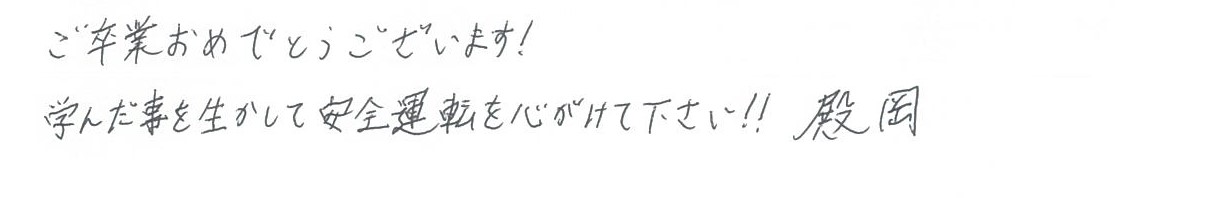 ご卒業おめでとうございます!
学んだ事を生かして安全運転を心がけて下さい!! 殿岡